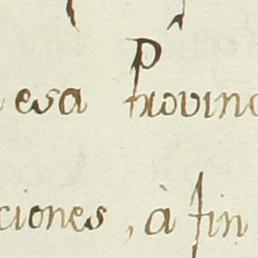 esa Provinc
ciones, à fin